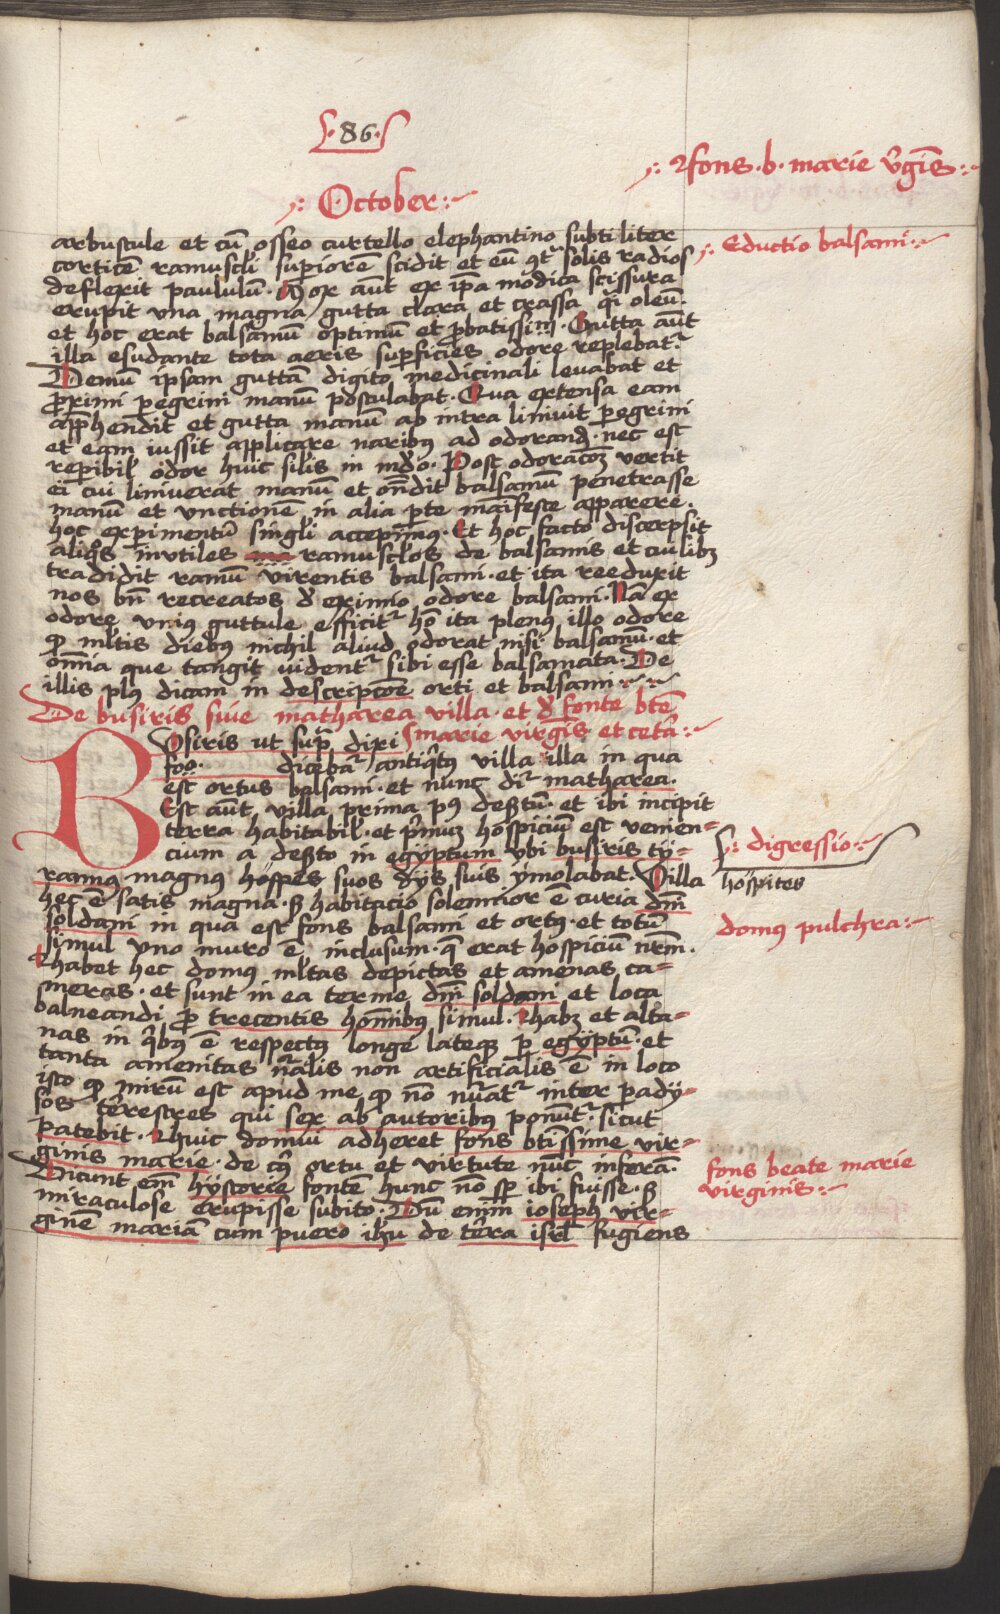 ·86·
fons · b · marie v̄gīs
October
Eductio balsami
arbuscule et cū osseo curtello elephantino subtiliter
corticē ramuscli supiorē scidit et eū 9tͣ solis radios
deflexit paululū · Mox aūt ex ip̄a modica scissura
erupit vna magna gutta clara et crassa qͥ oleū ·
et hoc erat balsamū optimū et p̱batissim̄ · Gutta aūt
illa esudante tota aeris supficies odore replebat᷑
Demū ipsam guttā digito medicinali levabat et
p̱ximi pegrini manū postulabat · Qua extensa eam
app̄hendit et gutta manū ab intra liniuit pegrini
et eam iussit applicare naribꝰ ad odorand̄ · nec est
repibil̄ odor huic sil̄is in mūdo · Post odoracōꝫ vertit
ei cui liniuerat manū et on̄dit balsamū penetrasse
manū et vnctionē in alia pte maīfeste apparere ·
hoc expimentū singl̄i accepimꝰ · Et hoc facto discerpsit
aliqͦs invtiles ramusclos de balsamis et cuilibꝫ
tradidit ramū virentis balsami · et ita reeduxit
nos bn̄ recreatos d̄ eximio odore balsami · Nā ex
odore vniꝰ guttule efficit᷑ hō ita plenꝰ illo odore
ꝙ ml̄tis diebꝰ nichil aliud odorat nisi balsamū · et
om̄ia que tangit uident᷑ sibi esse balsamata · De
illis plꝰ dicam in descripcōe orti et balsami
De busiris siue matharea villa · et d̄ fonte btē
marie virgīs et cetͣ
BUsiris ut supͣ dixi
foº · dicebat᷑ antiqͥtꝰ villa illa in qua
est ortus balsami · et nunc dr̄ matharea ·
Est aūt villa prima pꝰ desertū · et ibi incipit
terra habitabil̄ · et pͥmuꝫ hospiciū est venien=
cium a deserto in egyptum vbi busiris ty=
digressio
rannꝰ magnꝰ hospes suos dijs suis ymolabat · Villa
hospites
hec ē satis magna · ꝫ habitacio solennior ē curia dn̄i
soldani in qua est fons balsami et ortꝰ · et totū
domꝰ pulchra
simul vno muro ē inclusum · q̄ erat hospiciū nr̄m ·
habet hec domꝰ ml̄tas depictas et amenas ca=
meras · et sunt in ea terme dn̄i soldani et loca
balneandi p̱ trecentis hom̄ibꝰ simul · habꝫ et alta=
nas in qͥbꝰ ē respectꝰ longe lateqꝫ p egyptū · et
tanta amenitas nͣalis non artificialis ē in loco
isto ꝙ mirū est apud me ꝙ nō nūat᷑ inter pady=
sos terrestres qui sex ab autoribꝰ ponūt᷑ sicut
patebit · huic domui adheret fons btissime vir=
ginis marie · de cꝰ ortu et virtute nūc inferā ·
fons beate marie
virginis
Dicunt em̄ hystorie fontē hunc nō sp ibi fuisse · ꝫ
miraculose erupisse subito · Dū enim ioseph vir=
ginē mariā cum puero ihū de terra isrl̄ fugiens